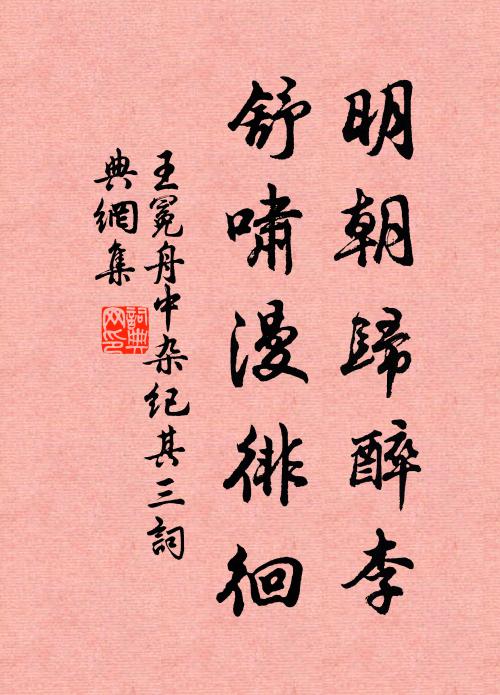 明朝歸醉李
舒嘯漫徘徊
王冕舟中杂纪其三詞
典網集
詞典
网印